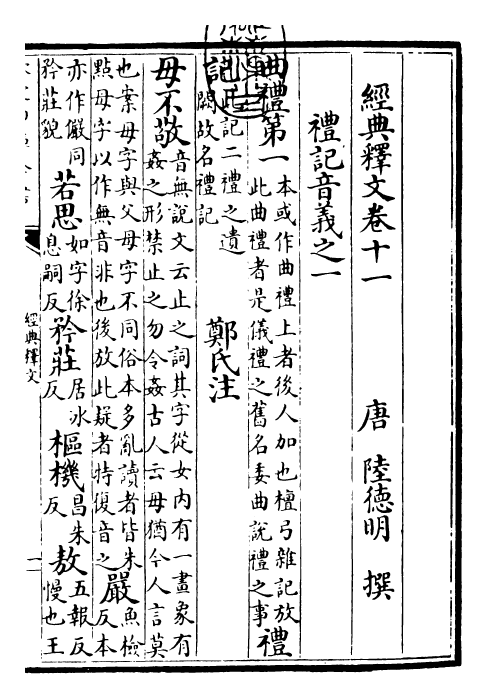 經典釋文卷十一
唐 陸德明 撰
禮記音義之一
曲禮第一 本或作曲禮上者後人加也檀弓雜記放
此曲禮者是儀禮之舊名委曲說禮之事 禮
記 此記二禮之遺
闕故名禮記 鄭氏注
毋不敬 音無說文云止之詞其字從女内有一畫象有
姦之形禁止之勿令姦古人云毋猶今人言莫
也案毋字與父母字不同俗本多亂讀者皆朱
點母字以作無音非也後放此疑者特復音之 嚴 魚檢
反本
亦作儼同
矜莊貌 若思 如字徐
息嗣反 矜莊 居冰
反 樞機 昌朱
反 敖 五報反
慢也王
經典釋文
一